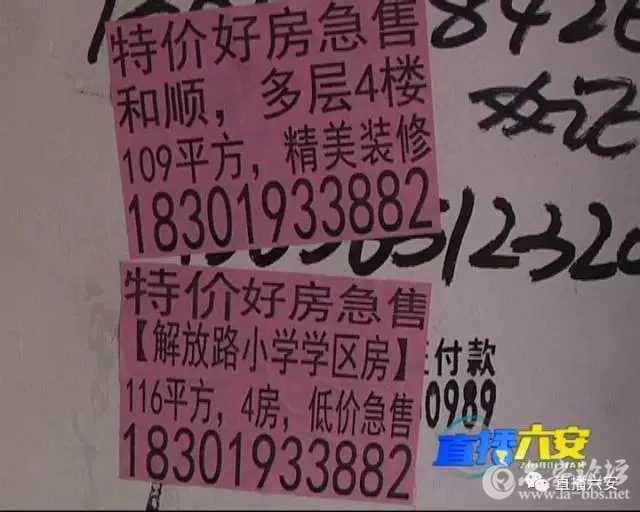 特价好房急售
和顺，多层4楼
109平方，精美装修
18301933882
特价好房急售
【解放路小学学区房】
116平方，4房，低价急售
18301933882
付款
0989
直播六安
ZHIBOLUAN
直播六安
www.la-bbs.net